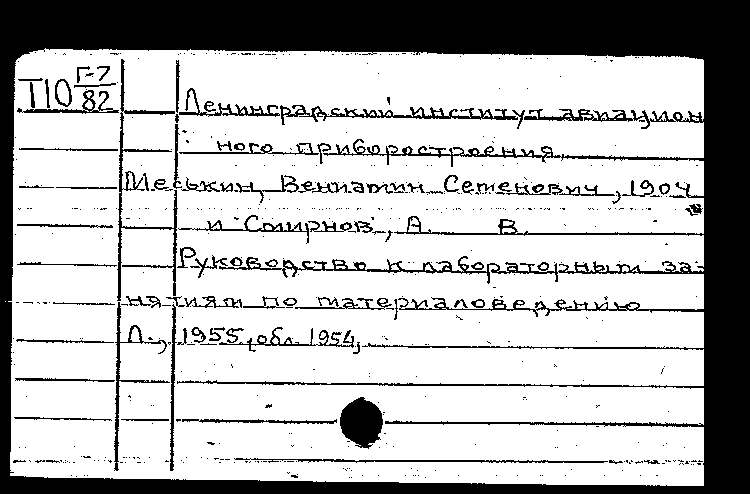 Т10 Г-7
82
Ленинградский институт авиацион
ного приборостроения.
Меськин, Вениамин Семенович, 1904
и Смирнов, А. В.
Руководство к лабораторным за-
нятиям по материаловедению
Л., 1955, обл. 1954,